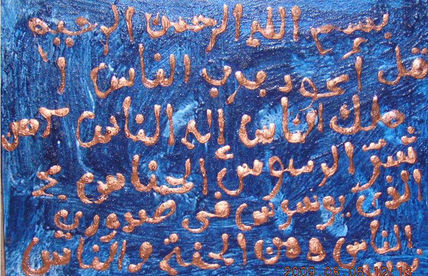 بسم الله الرحمن الرحيم
قل أعوذ برب الناس
ملك الناس اله الناس من
شرّ الوسوس الخناس
الذى يوسوس فى صدورى
الناس ومن الجنة والناس